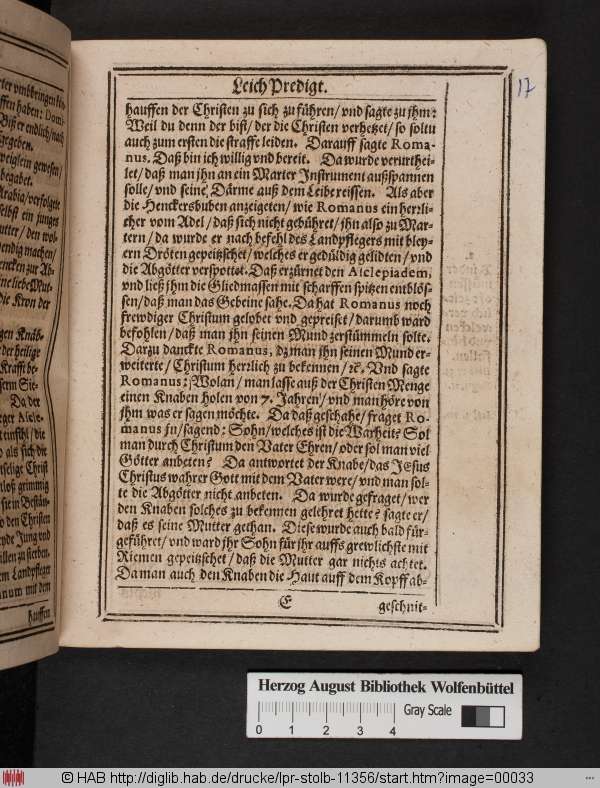 Leich Predigt.
17
hauffen der Christen zu sich zu führen/ vnd sagte zu jhm:
Weil du denn der bist/ der die Christen verhetzet/ so soltu
auch zum ersten die straffe leiden. Darauff sagte Roma-
nus. Daß bin ich willig vnd bereit. Da wurde verurthei-
let/ daß man jhn an ein Marter Instrument außspannen
solle/ vnd seine Därme auß dem Leibe reissen. Als aber
die Henckersbuben anzeigeten/ wie Romanus ein herrli-
cher vom Adel/ daß sich nicht gebühret/ jhn also zu Mar-
tern/ da wurde er nach befehl des Landpflegers mit bley-
ern Dröten gepeitzschet/ welches er gedüldig gelidten/ vnd
die Abgötter verspottet. Daß erzürnet den Asclepiadem,
vnd ließ jhm die Gliedmassen mit scharffen spitzen entblös-
sen/ daß man das Gebeine sahe. Da hat Romanus noch
frewdiger Christum gelobet vnd gepreiset/ darumb ward
befohlen/ daß man jhn seinen Mund zerstümmeln solte.
Darzu danckte Romanus, dz man jhn seinen Mund er-
weiterte/ Christum herrlich zu bekennen/ ꝛc. Vnd sagte
Romanus: Wolan/ man lasse auß der Christen Menge
einen Knaben holen von 7. Jahren/ vnd man höre von
jhm was er sagen möchte. Da daß geschahe/ fraget Ro-
manus jn/ sagend: Sohn/ welches ist die Warheit? Sol
man durch Christum den Vater Ehren/ oder sol man viel
Götter anbeten? Da antwortet der Knabe/ das JEsus
Christus wahrer Gott mit dem Vater were/ vnd man sol-
te die Abgötter nicht anbeten. Da wurde gefraget/ wer
den Knaben solches zu bekennen gelehret hette? sagte er/
daß es seine Mutter gethan. Diese wurde auch bald für-
geführet/ vnd ward jhr Sohn für jhr auffs grewlichste mit
Riemen gepeitzschet/ daß die Mutter gar nichts achtet.
Da man auch den Knaben die Haut auff dem Kopff ab-
E geschnit-
hauffen
Herzog August Bibliothek Wolfenbüttel
0 1 2 3 4
Gray Scale
© HAB http://diglib.hab.de/drucke/lpr-stolb-11356/start.htm?image=00033